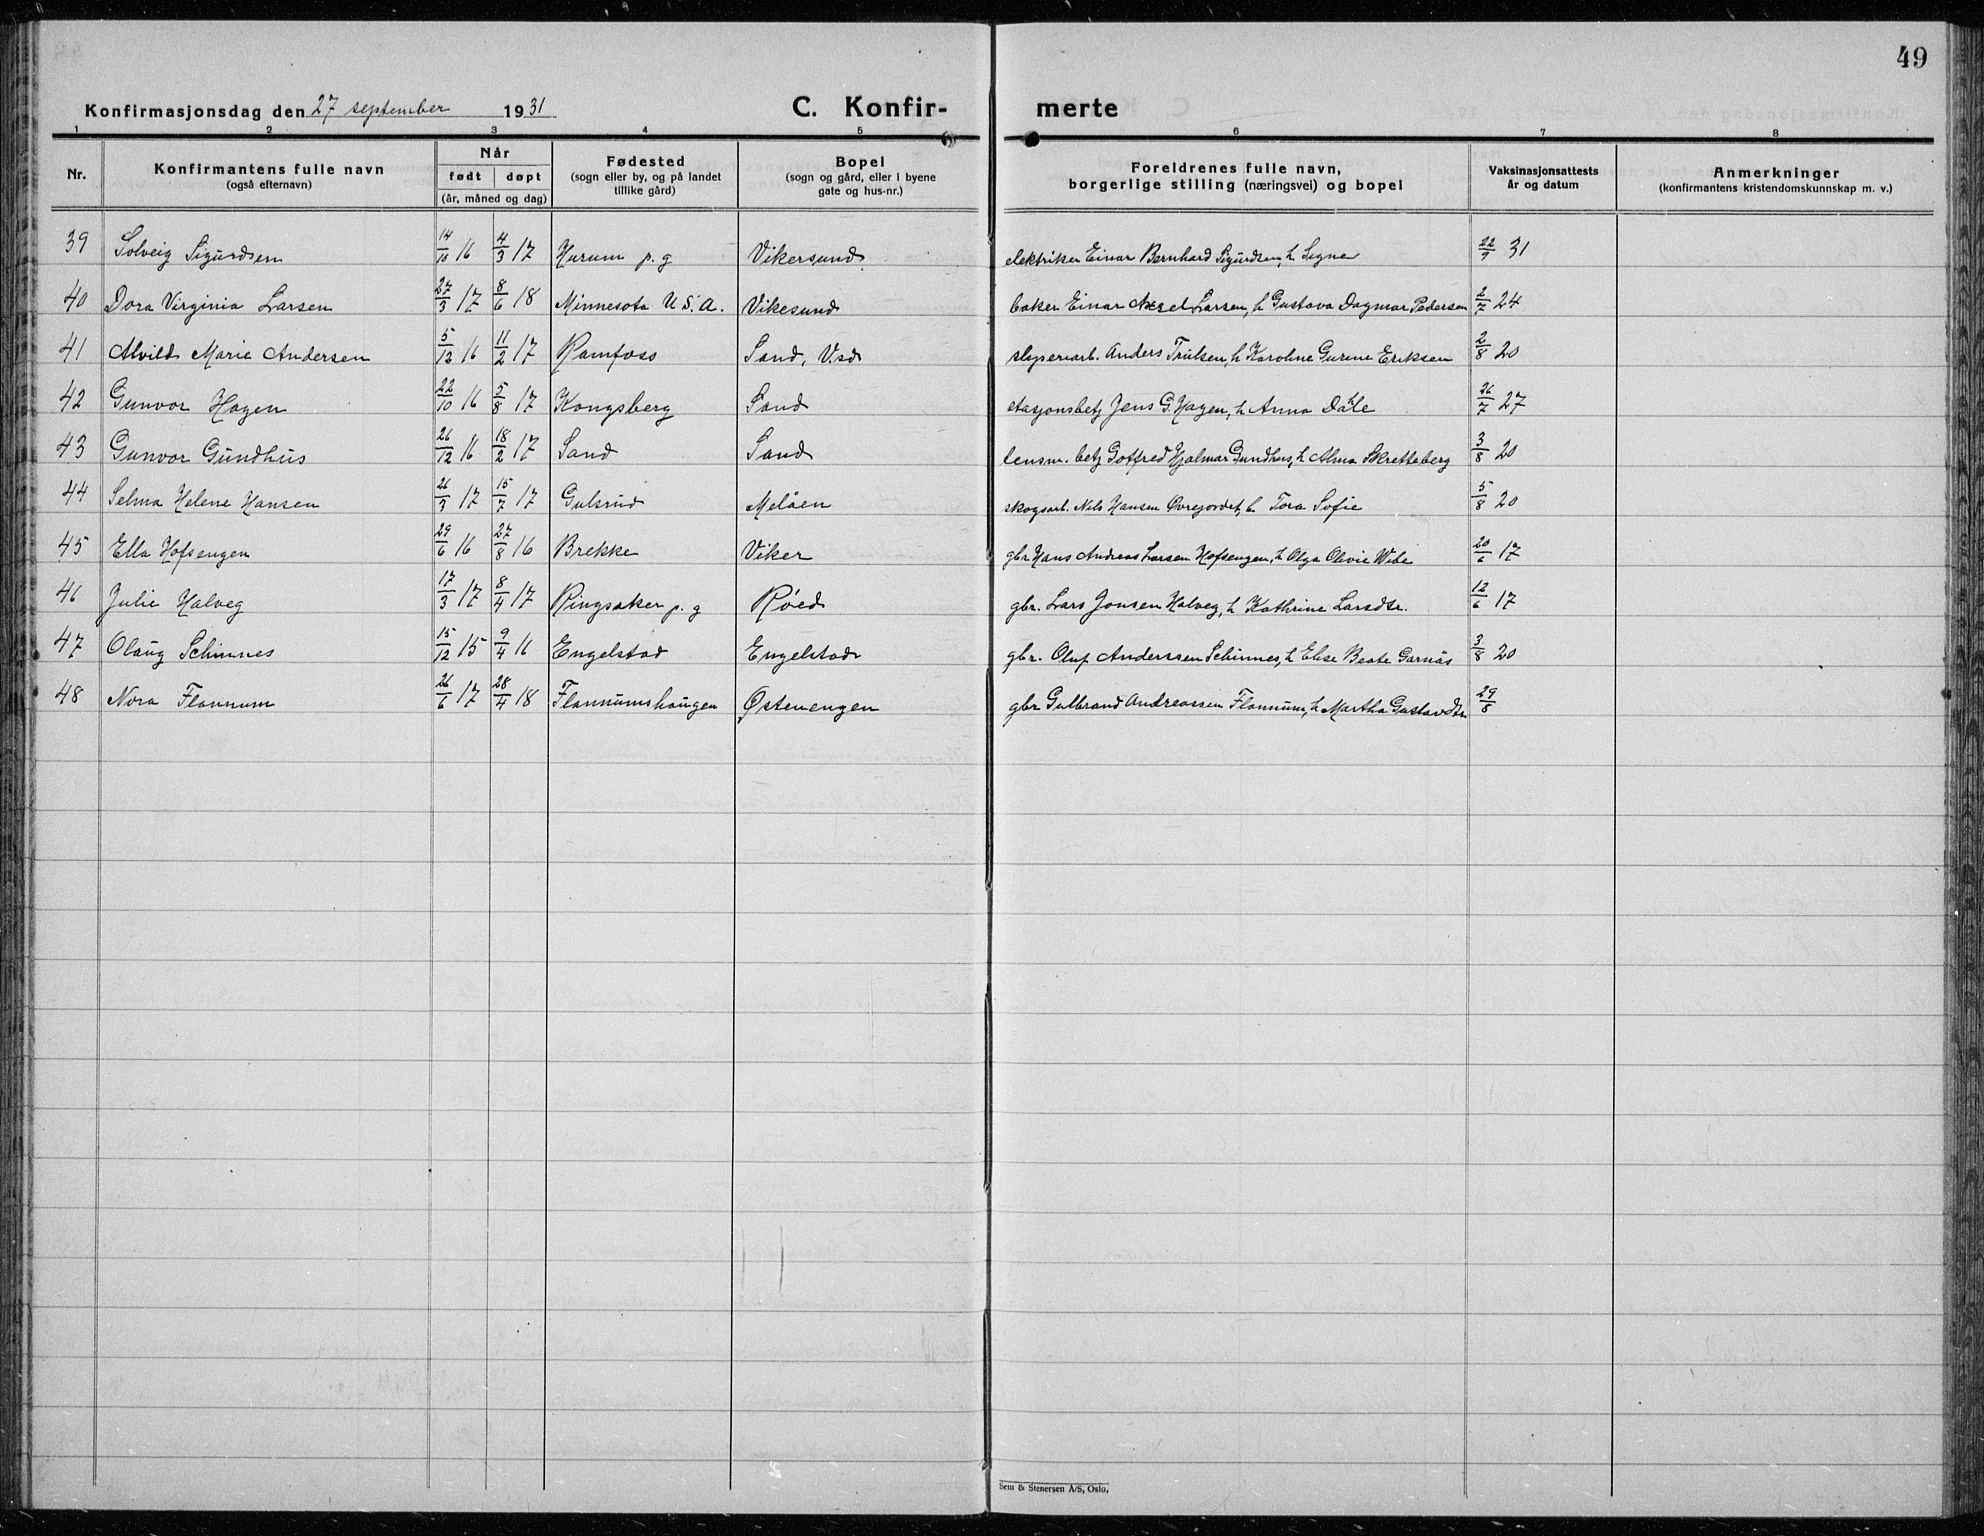 49
Konfirmasjonsdag den 27 september 1931 C. Konfir- merte
1 2 3 4 5 6 7 8
Nr. Konfirmantens fulle navn (også efternavn) Når født døpt (år, måned og dag) Fødested (sogn eller by, og på landet tillike gård) Bopel (sogn og gård, eller i byene gate og hus-nr.) Foreldrenes fulle navn, borgerlige stilling (næringsvei) og bopel Vaksinasjonsattests år og datum Anmerkninger (konfirmantens kristendomskunnskap m. v.)
39 Solveig Sigurdsen 14/10 16 4/3 17 Hurum p.g Vikersund elektriker Einar Bernhard Sigurdsen, h. Signe 22/9 31
40 Dora Virginia Larsen 27/3 17 8/6 18 Minnesota U.S.A. Vikesund baker Einar Axel Larsen, h. Gustava Dagmar Pedersen 2/7 24
41 Alvild Marie Andersen 5/12 16 11/2 17 Ramfoss Sand, V.sd sliperiarb. Anders Trulsen, h. Karoline Gurine Eriksen 2/8 20
42 Gunvor Hagen 22/10 16 5/8 17 Kongsberg Sand stasjonsbetj Jens G. Hagen, h. Anna Dahle 26/7 27
43 Gunvor Gundhus 26/12 16 18/2 17 Sand Sand lensm. betj Gotfred Hjalmar Gundhus, h. Alma Skretteberg 3/8 20
44 Selma Helene Hansen 26/3 17 15/7 17 Gulsrud Meløen skogsarb. Nils Hansen Øvrejordet, h. Tora Sofie 5/8 20
45 Ella Hofsengen 29/6 16 27/8 16 Brekke Viker gbr Hans Andreas Larsen Hofsengen, h. Olga Olivie Wibe 20/6 17
46 Julie Halveg 17/3 17 8/4 17 Ringsaker p.g Røed gbr. Lars Jonsen Halveg, h. Kathrine Larsdtr. 12/6 17
47 Olaug Schinnes 15/12 15 9/4 16 Engelstad Engelstad gbr. Oluf Anderssen Schinnes, h. Elise Beate Garnås 3/8 20
48 Nora Flannum 26/6 17 28/4 18 Flannumshaugen Østenengen gbr Gulbrand Andreassen Flannum, h. Martha Gustavdtr 29/8
Sem & Stenersen A/S, Oslo.